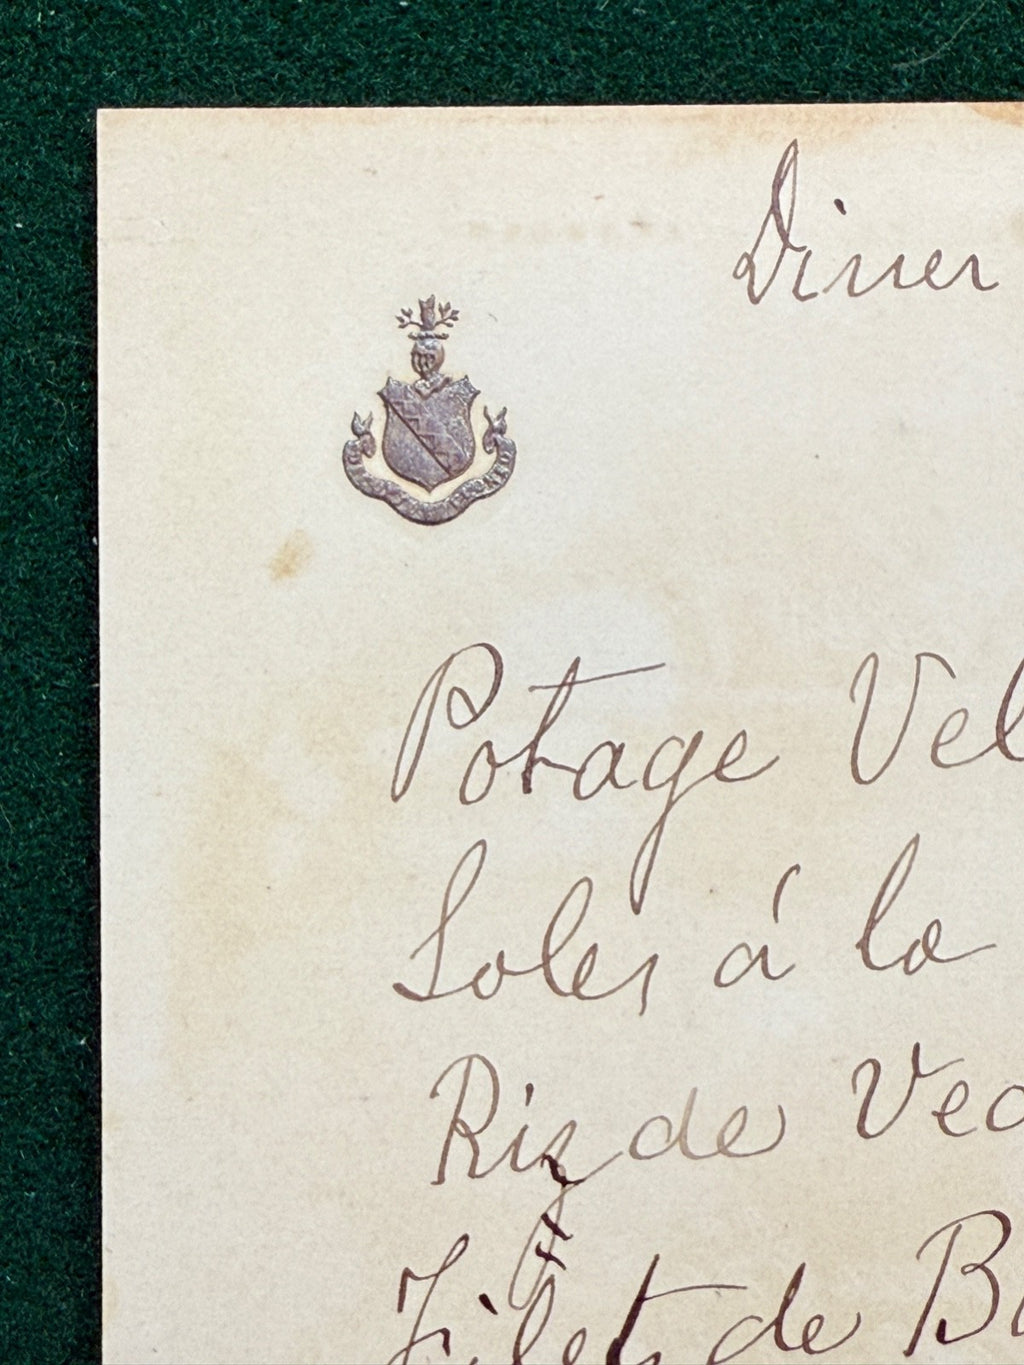 Diner
Potage Vel
Soles á la
Riz de Vea
Filet de B